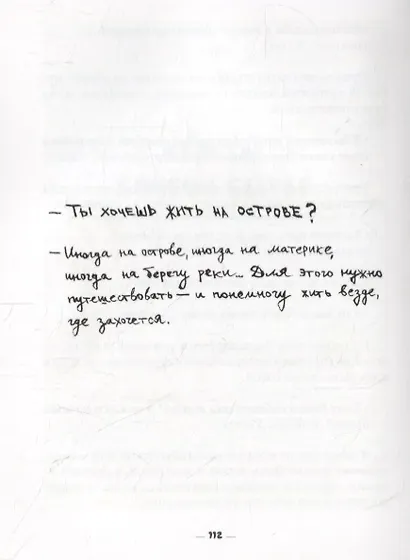 — Ты хочешь жить на острове?
— Иногда на острове, иногда на материке,
иногда на берегу реки... Для этого нужно
путешествовать — и понемногу жить везде,
где захочется.
— 112 —